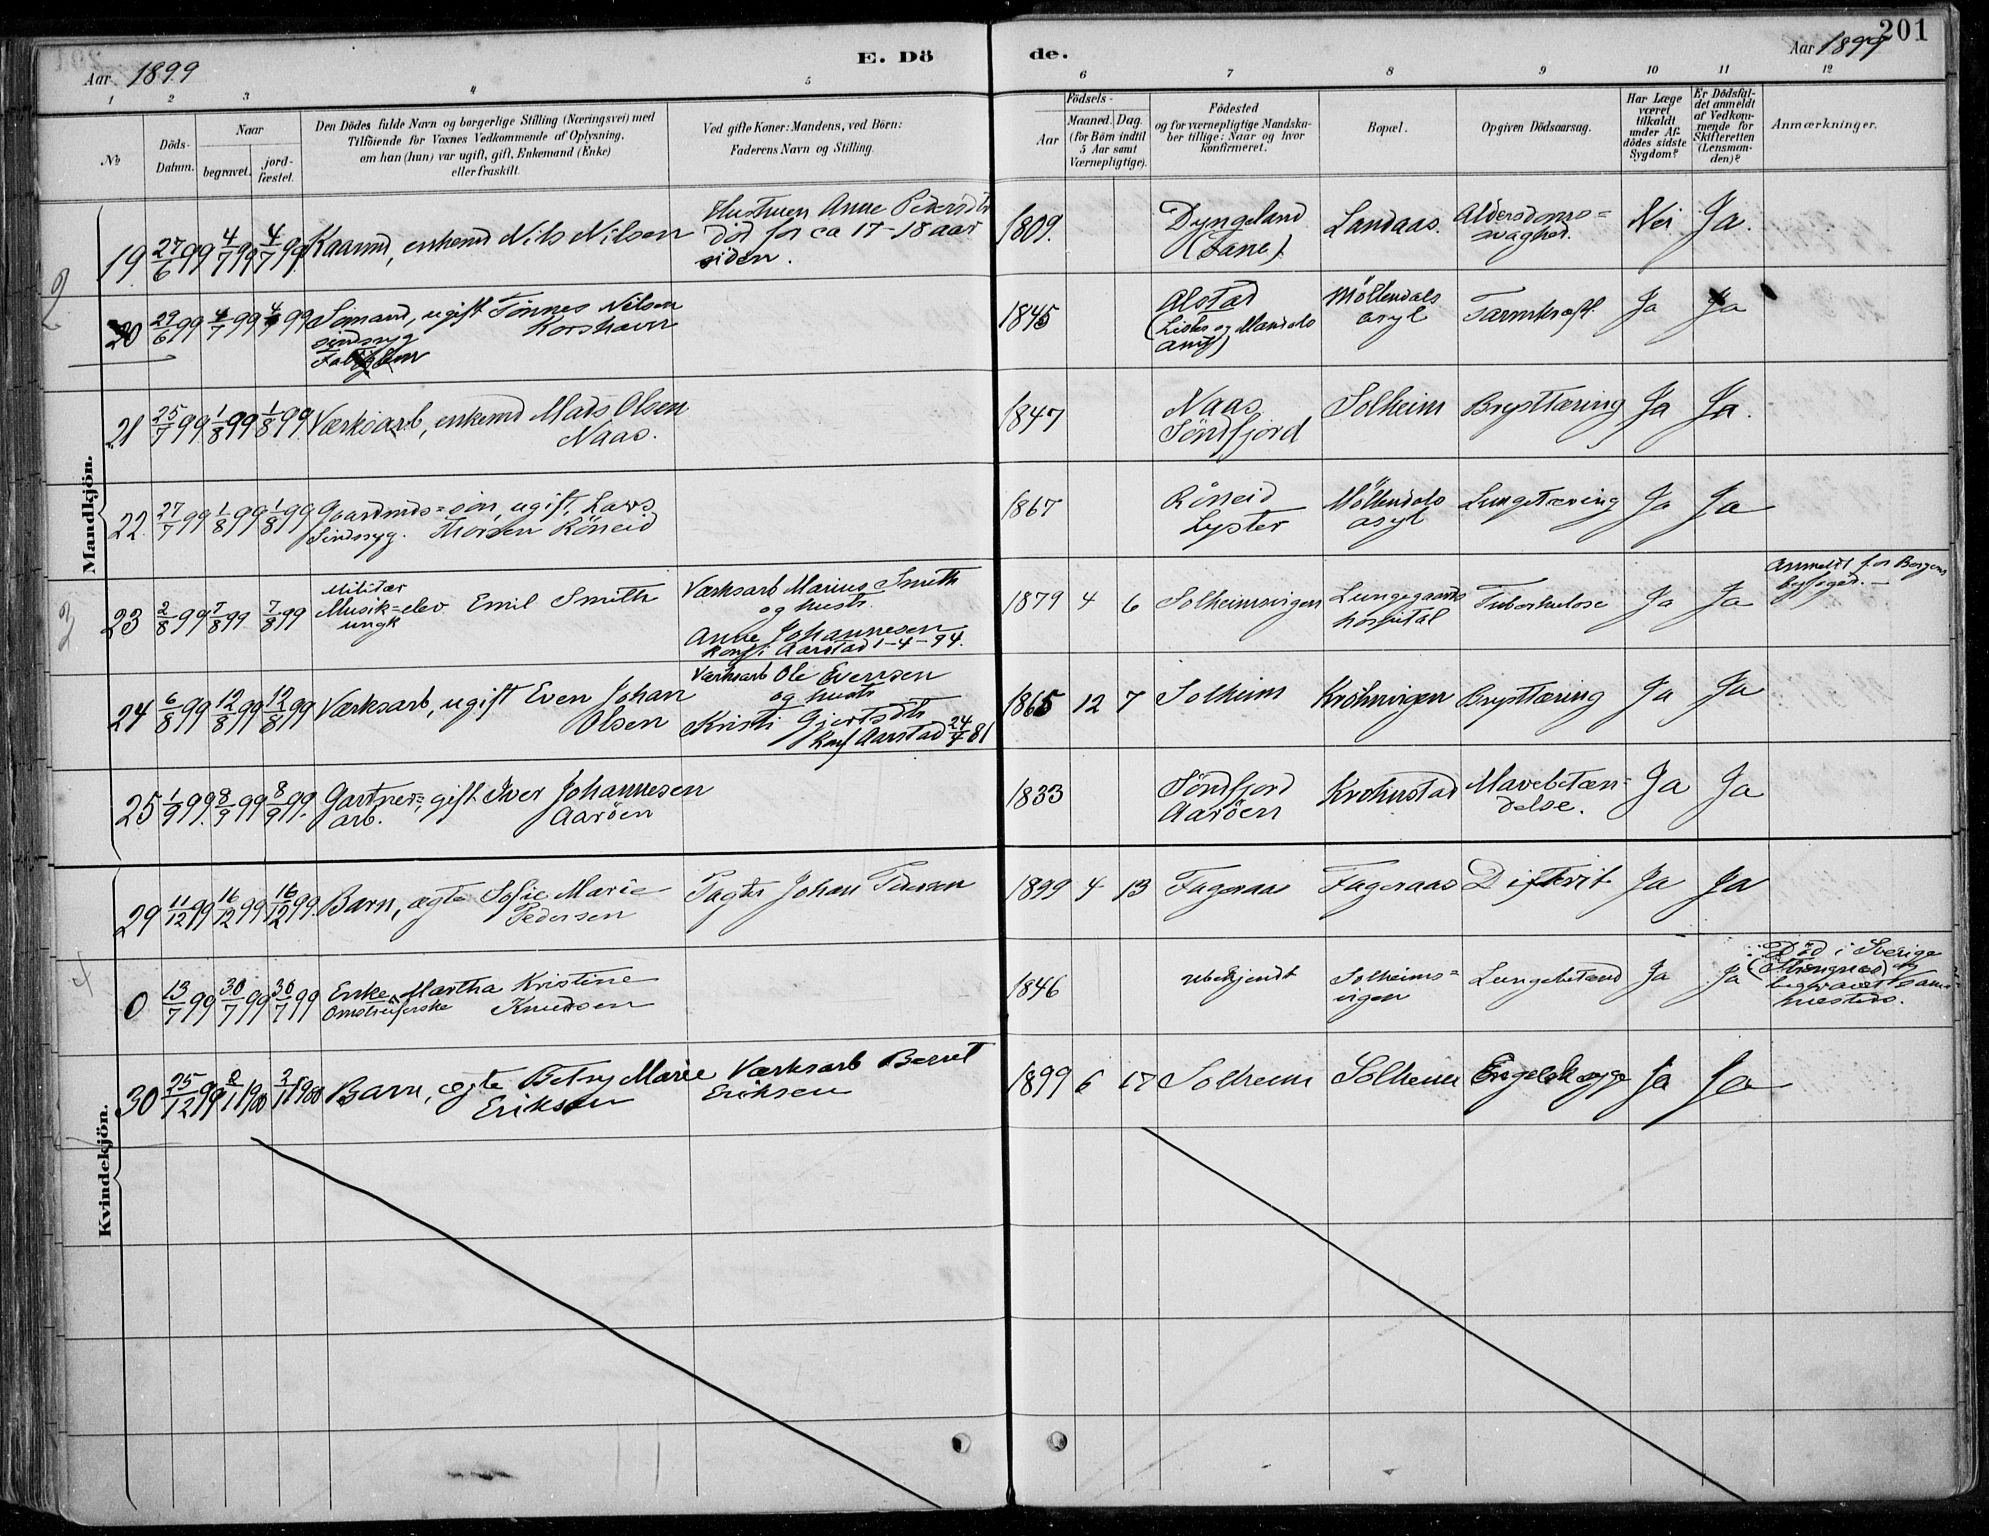 201
Aar 1899
E. Döde.
Aar 1899
1 2 3 4 5 6 7 8 9 10 11 12
No
Döds-Datum.
Naar
begravet.
jordfæstet.
Den Dödes fulde Navn og borgerlige Stilling (Næringsvei) med
Tilföiende for Voxnes Vedkommende af Oplysning,
om han (hun) var ugift, gift, Enkemand (Enke)
eller fraskilt.
Ved gifte Koner: Mandens, ved Börn:
Faderens Navn og Stilling.
Födsels-
Aar
Maaned. Dag.
(for Börn indtil
5 Aar samt
Værnepligtige).
Födested
og for værnepligtige Mandska-
ber tillige: Naar og hvor
konfirmeret.
Bopæl.
Opgiven Dödsaarsag.
Har Læge
været
tilkaldt
under Af-
dödes sidste
Sygdom?
Er Dödsfal-
det anmeldt
af Vedkom-
mende for
Skifteretten
(Lensman-
den)?
Anmærkninger.
Mandkjön.
19 27/6 99 4/7 99 4/7 99 Kaarmd, enkemd Nils Nilsen
Hustruen Anne Pedersdtr
död for ca 17-18 aar
siden.
1809. Dyngeland
(Fane)
Landaas. Alderdoms=
svaghed. Nei Ja.
20 29/6 99 4/7 99 4/7 99 Sömand, ugift Tönnes Nilsen
Korshavn
sindssyg
1845 Alstad
(Lister og Mandals
amt)
Möllendals
asyl Tarmkræft. Ja Ja
21 25/7 99 1/8 99 1/8 99 Værksarb, enkemd Mads Olsen
Naas.
1847 Naas
Söndfjord
Solheim Brysttæring Ja Ja.
22 27/7 99 1/8 99 1/8 99 Gaardmds=sön, ugift, Lars
Sindssyg. Thorsen Röneid
1867 Röneid
Lyster
Möllendals
asyl Lungetæring Ja Ja
23 2/8 99 7/8 99 7/8 99 Militær
Musik=elev Emil Smith
ungk
Værksarb Marius Smith
og hustr.
Anne Johannesen
konf i Aarstad 1-4-94.
1879 4 6 Solheimsvigen Lungegaards
hospital Tuberkulose Ja Ja Anmeldt for Bergens
byfoged.
24 6/8 99 12/8 99 12/8 99 Værksarb, ugift Even Johan
Olsen
Værksarb Ole Evensen
og hustr
Kristi Gjertsdtr
konf Aarstad 24/4 81
1865 12 7 Solheim Krohnvigen Brysttæring Ja Ja
25 1/9 99. 8/9 99 8/9 99. Gartner=, gift Iver Johannesen
arb. Aaröen
1833 Söndfjord
Aaröen
Krohnstad Mavebetæn=
delse. Ja Ja
Kvindekjön.
29 11/12 99 16/12 99 16/12 99. Barn, ægte Sofie Marie
Pedersen
Pagter Johan Pedersen
1899 4 13 Fageraas Fageraas Difterit Ja Ja
0 13/7 99 30/7 99 30/7 99 Enke Martha Kristine
Knudsen
1846 ubekjendt Solheims=
vigen Lungebetænd Ja Ja Död i Sverige
(Strengnæs) og
begravet sam=
mesteds.
30 25/12 99 2/1 1900 2/1 1900 Barn, ægte Betsy Marie
Eriksen
Værksarb Bernt
Eriksen
1899 6 17 Solheim Solheim Engelsk syge Ja Ja